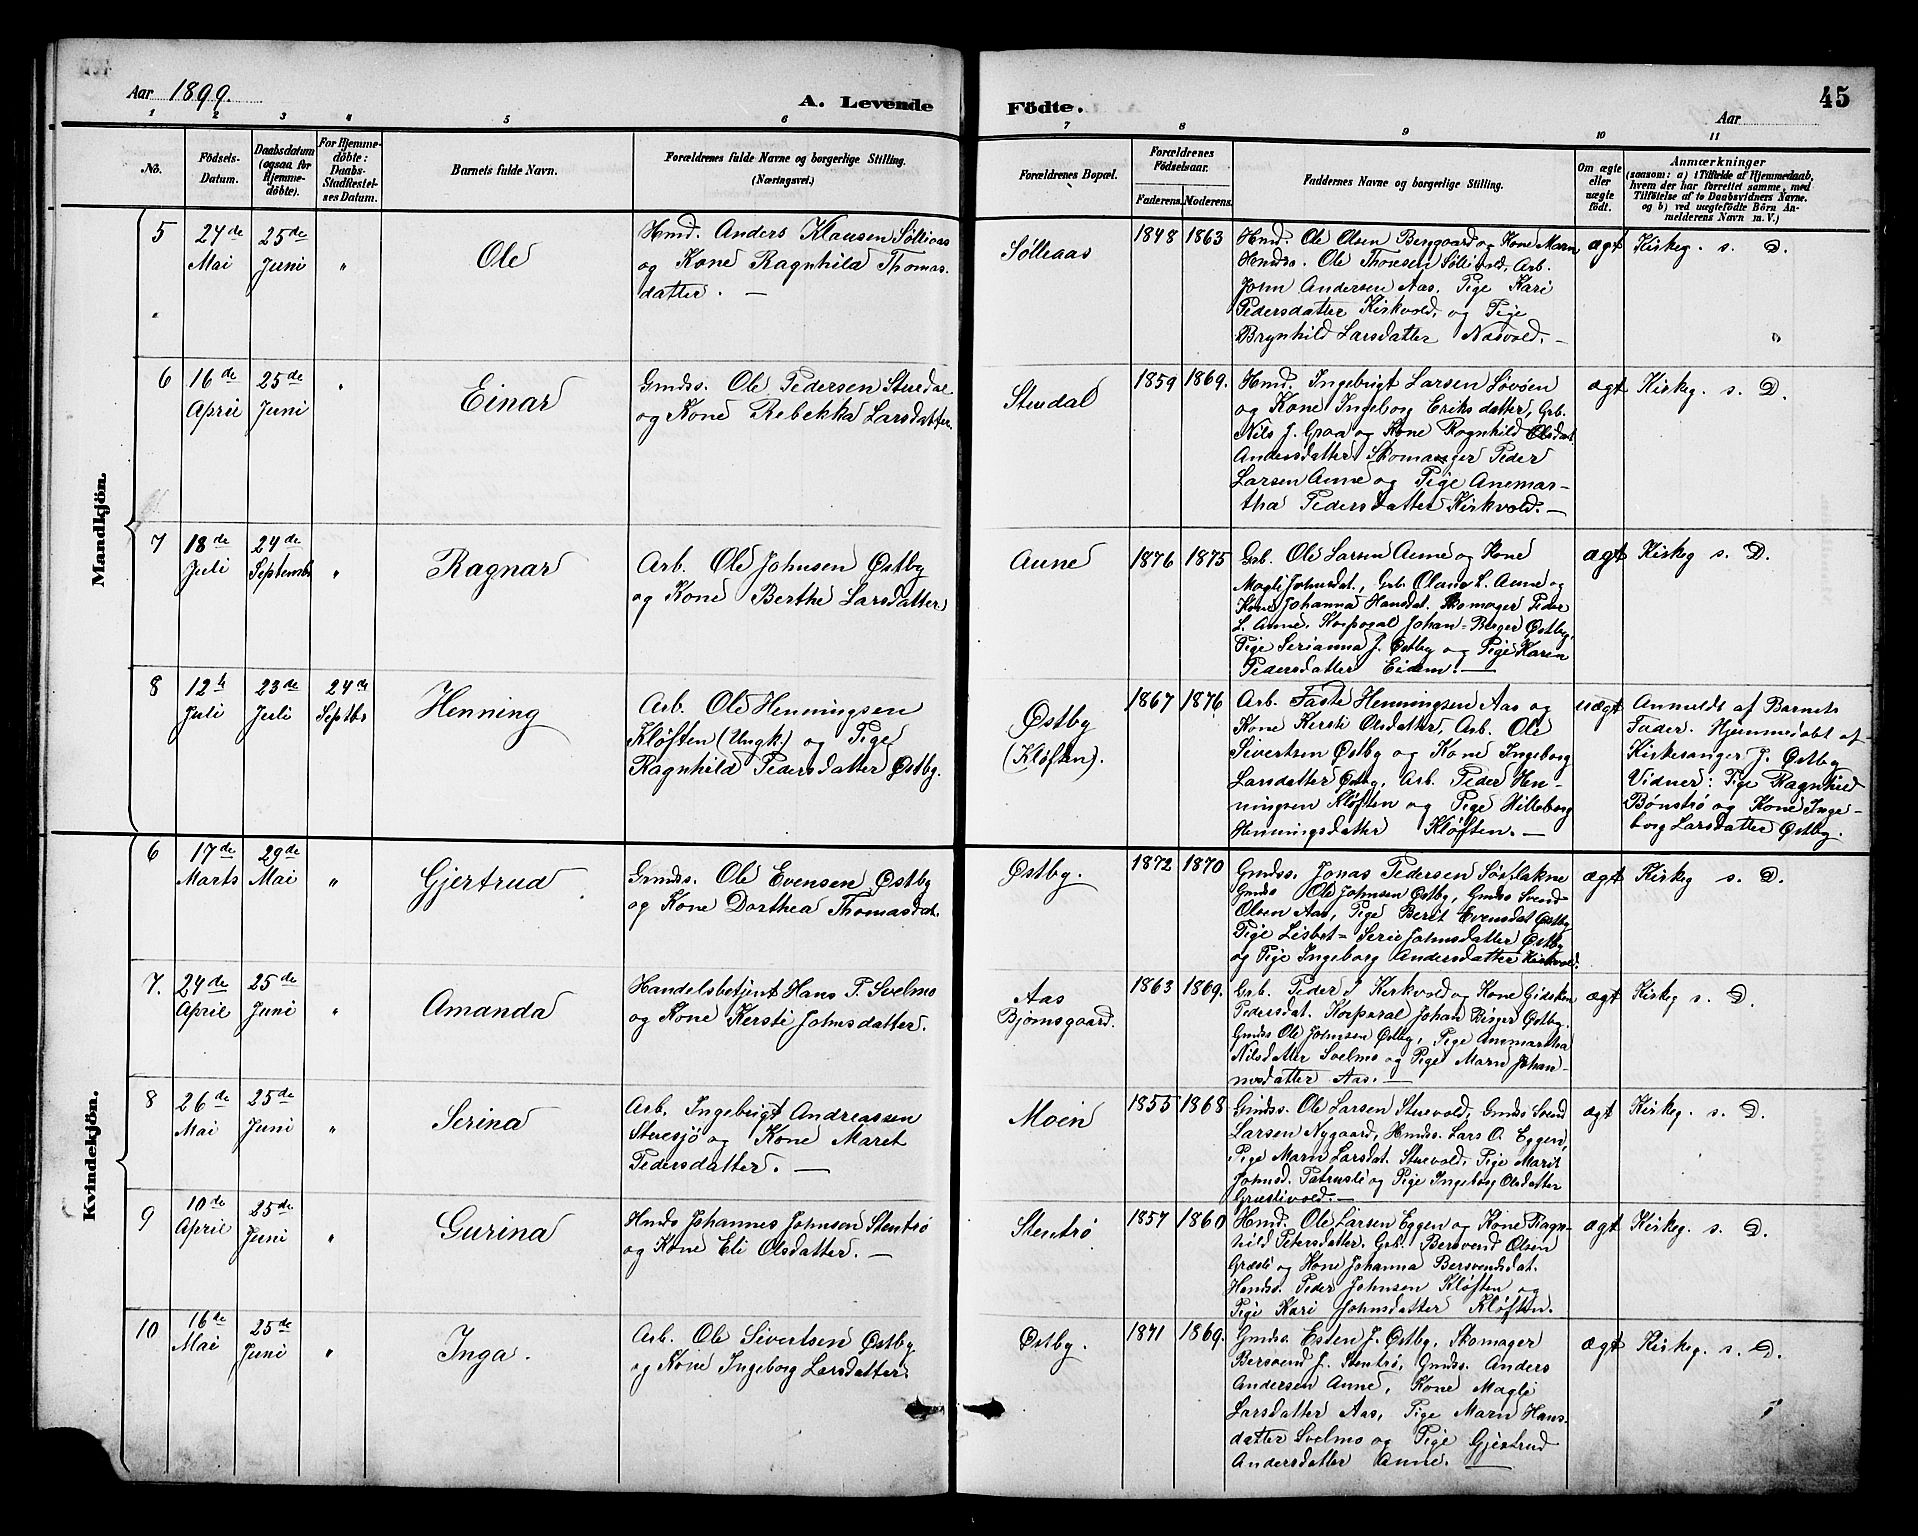 Aar 1899.
A. Levende
Födte.
45
Aar
1 2 3 4 5 6 7 8 9 10 11
No.
Födsels-
Datum.
Daabsdatum
(ogsaa for
Hjemme-
döbte).
For Hjemme-
döbte:
Daabs-
Stadfæstel-
ses Datum.
Barnets fulde Navn.
Forældrenes fulde Navne og borgerlige Stilling.
(Næringsvei.)
Forældrenes Bopæl.
Forældrenes
Födselsaar.
Faderens. Moderens.
Faddernes Navne og borgerlige Stilling.
Om ægte
eller
uægte
født.
Anmærkninger
(saasom: a) i Tilfælde af Hjemmedaab,
hvem der har forrettet samme, med
Tilföielse af to Daabsvidners Navne.
og b) ved uægtefödte Börn An-
melderens Navn m. V.)
Mandkjön.
5
24de
Mai
25de
Juni
"
Ole
Hmd. Anders Klausen Sølliaas
og Kone Ragnhild Thomas.
datter. —
Sølliaas
1848 1863
Hmd. Ole Olsen Berggaard og Kone Marn
Hmdss. Ole Thoresen Søllivold, Arb.
John Andersen Aas. Pige Kari
Pedersdatter Kirkvold, og Pige
Brynhild Larsdatter Næsvold. —
ægt
Kirkeg. s. D.
"
6
16de
April
25de
Juni
"
Einar
Gmdss. Ole Pedersen Stendal
og Kone Rebekka Larsdatter.
Stendal
1859 1869.
Hmd. Ingebrigt Larsen Løvøen
og Kone Ingeborg Eriksdatter, Grb.
Nils J. Graa og Kone Ragnhild Olsdat.
Andersdatter, Skomager Peder
Larsen Aune og Pige Anemar-
tha Pedersdatter Kirkvold. —
ægt
Kirkeg. s. D.
7
18de
Juli
24de
Septembr
"
Ragnar
Arb. Ole Johnsen Østby
og Kone Berthe Larsdatter
Aune
1876 1875
Grb. Ole Larsen Aune og Kone
Magli Johnsdat., Grb. Olaus L. Aune og
Kone Johanna Hansdat. Skomager Peder
L. Aune. Korporal Johan Berger Østby,
Pige Serianna J. Østby og Pige Karen
Pedersdatter Eidem. —
ægt
Kirkeg s. D.
8
12te
Juli
23de
Juli
24de
Septbr
Henning
Arb. Ole Henningsen
Kløften (Ungk.) og Pige
Ragnhild Pedersdatter Østby.
Østby
(Kløften).
1867 1876
Arb. Faste Henningsen Aas og
Kone Kirsti Olsdatter, Arb. Ole
Sivertsen Østby og Kone Ingeborg
Larsdatter Østby, Arb. Peder Hen-
ningsen Kløften og Pige Hilleborg
Henningsdatter Kløften. —
uægt
Anmeldt af Barnets
Fader. Hjemmedøbt af
Kirkesanger J. Østby
Vidner: Pige Ragnhild
Bønstrø og Kone Inge-
borg Larsdatter Østby.
Kvindekjön.
6
17de
Marts
29de
Mai
"
Gjertrud
Gmdss. Ole Evensen Østby
og Kone Dorthea Thomasdat.
Østby.
1872 1870
Gmdss. Jonas Pedersen Sørflakne
Gmdss Ole Johnsen Østby, Gmdss Svend
Olsen Aas, Pige Berit Evensdat Østby
Pige Lisbet-Serie Johnsdatter Østby
og Pige Ingeborg Andersdatter Kirkvold.
ægt
Kirkeg s. D.
7.
24de
April
25de
Juni
"
Amanda
Handelsbetjent Hans P. Svelmo
og Kone Kersti Johnsdatter.
Aas
Bjørnsgaard.
1863 1869.
Grb. Peder J Kirkvold og Kone Gidsken
Pedersdat. Korporal Johan Birger Østby.
Gmdss Ole Johnsen Østby, Pige Anmartha
Nilsdatter Svelmo og Pige Marn Johan-
nesdatter Aas. —
ægt
Kirkeg s. D.
8
26de
Mai
25de
Juni
"
Serina
Arb. Ingebrigt Andreassen
Stuesjø og Kone Maret
Pedersdatter. —
Moen
1855 1868
Gmdss. Ole Larsen Stuevold, Gmdss Svend
Larsen Nygaard, Hmdss. Lars O. Eggen,
Pige Marn Larsdat. Stuevold, Pige Marit
Johnsd. Patrusli og Pige Ingeborg Olsdatter
Græslivold. —
ægt
Kirkeg. s. D.
9
10de
April
25de
Juni
"
Gurina
Hmds Johannes Johnsen Stentrø
og Kone Eli Olsdatter. —
Stentrø
1857 1860
Hmd. Ole Larsen Eggen og Kone Ragn-
hild Petersdatter. Grb. Bersvend Olsen
Græsli og Kone Johanna Bersvendsdat.
Hmdss. Peder Johnsen Kløften og
Pige Kari Johnsdatter Kløften.
ægt
Kirkeg. s. D.
10
16de
Mai
25de
Juni
"
Inga.
Arb. Ole Sivertsen Østby
og Kone Ingeborg Larsdatter.
Østby.
1871 1869.
Gmdss. Esten J. Østby. Skomager
Bersvend J. Stentrø, Gmdss. Anders
Andersen Aune, Kone Magli
Larsdatter Aas, Pige Marn Hans-
datter Svelmo og Pige Gjertrud
Andersdatter Aune. —
ægt
Kirkeg. s. D.